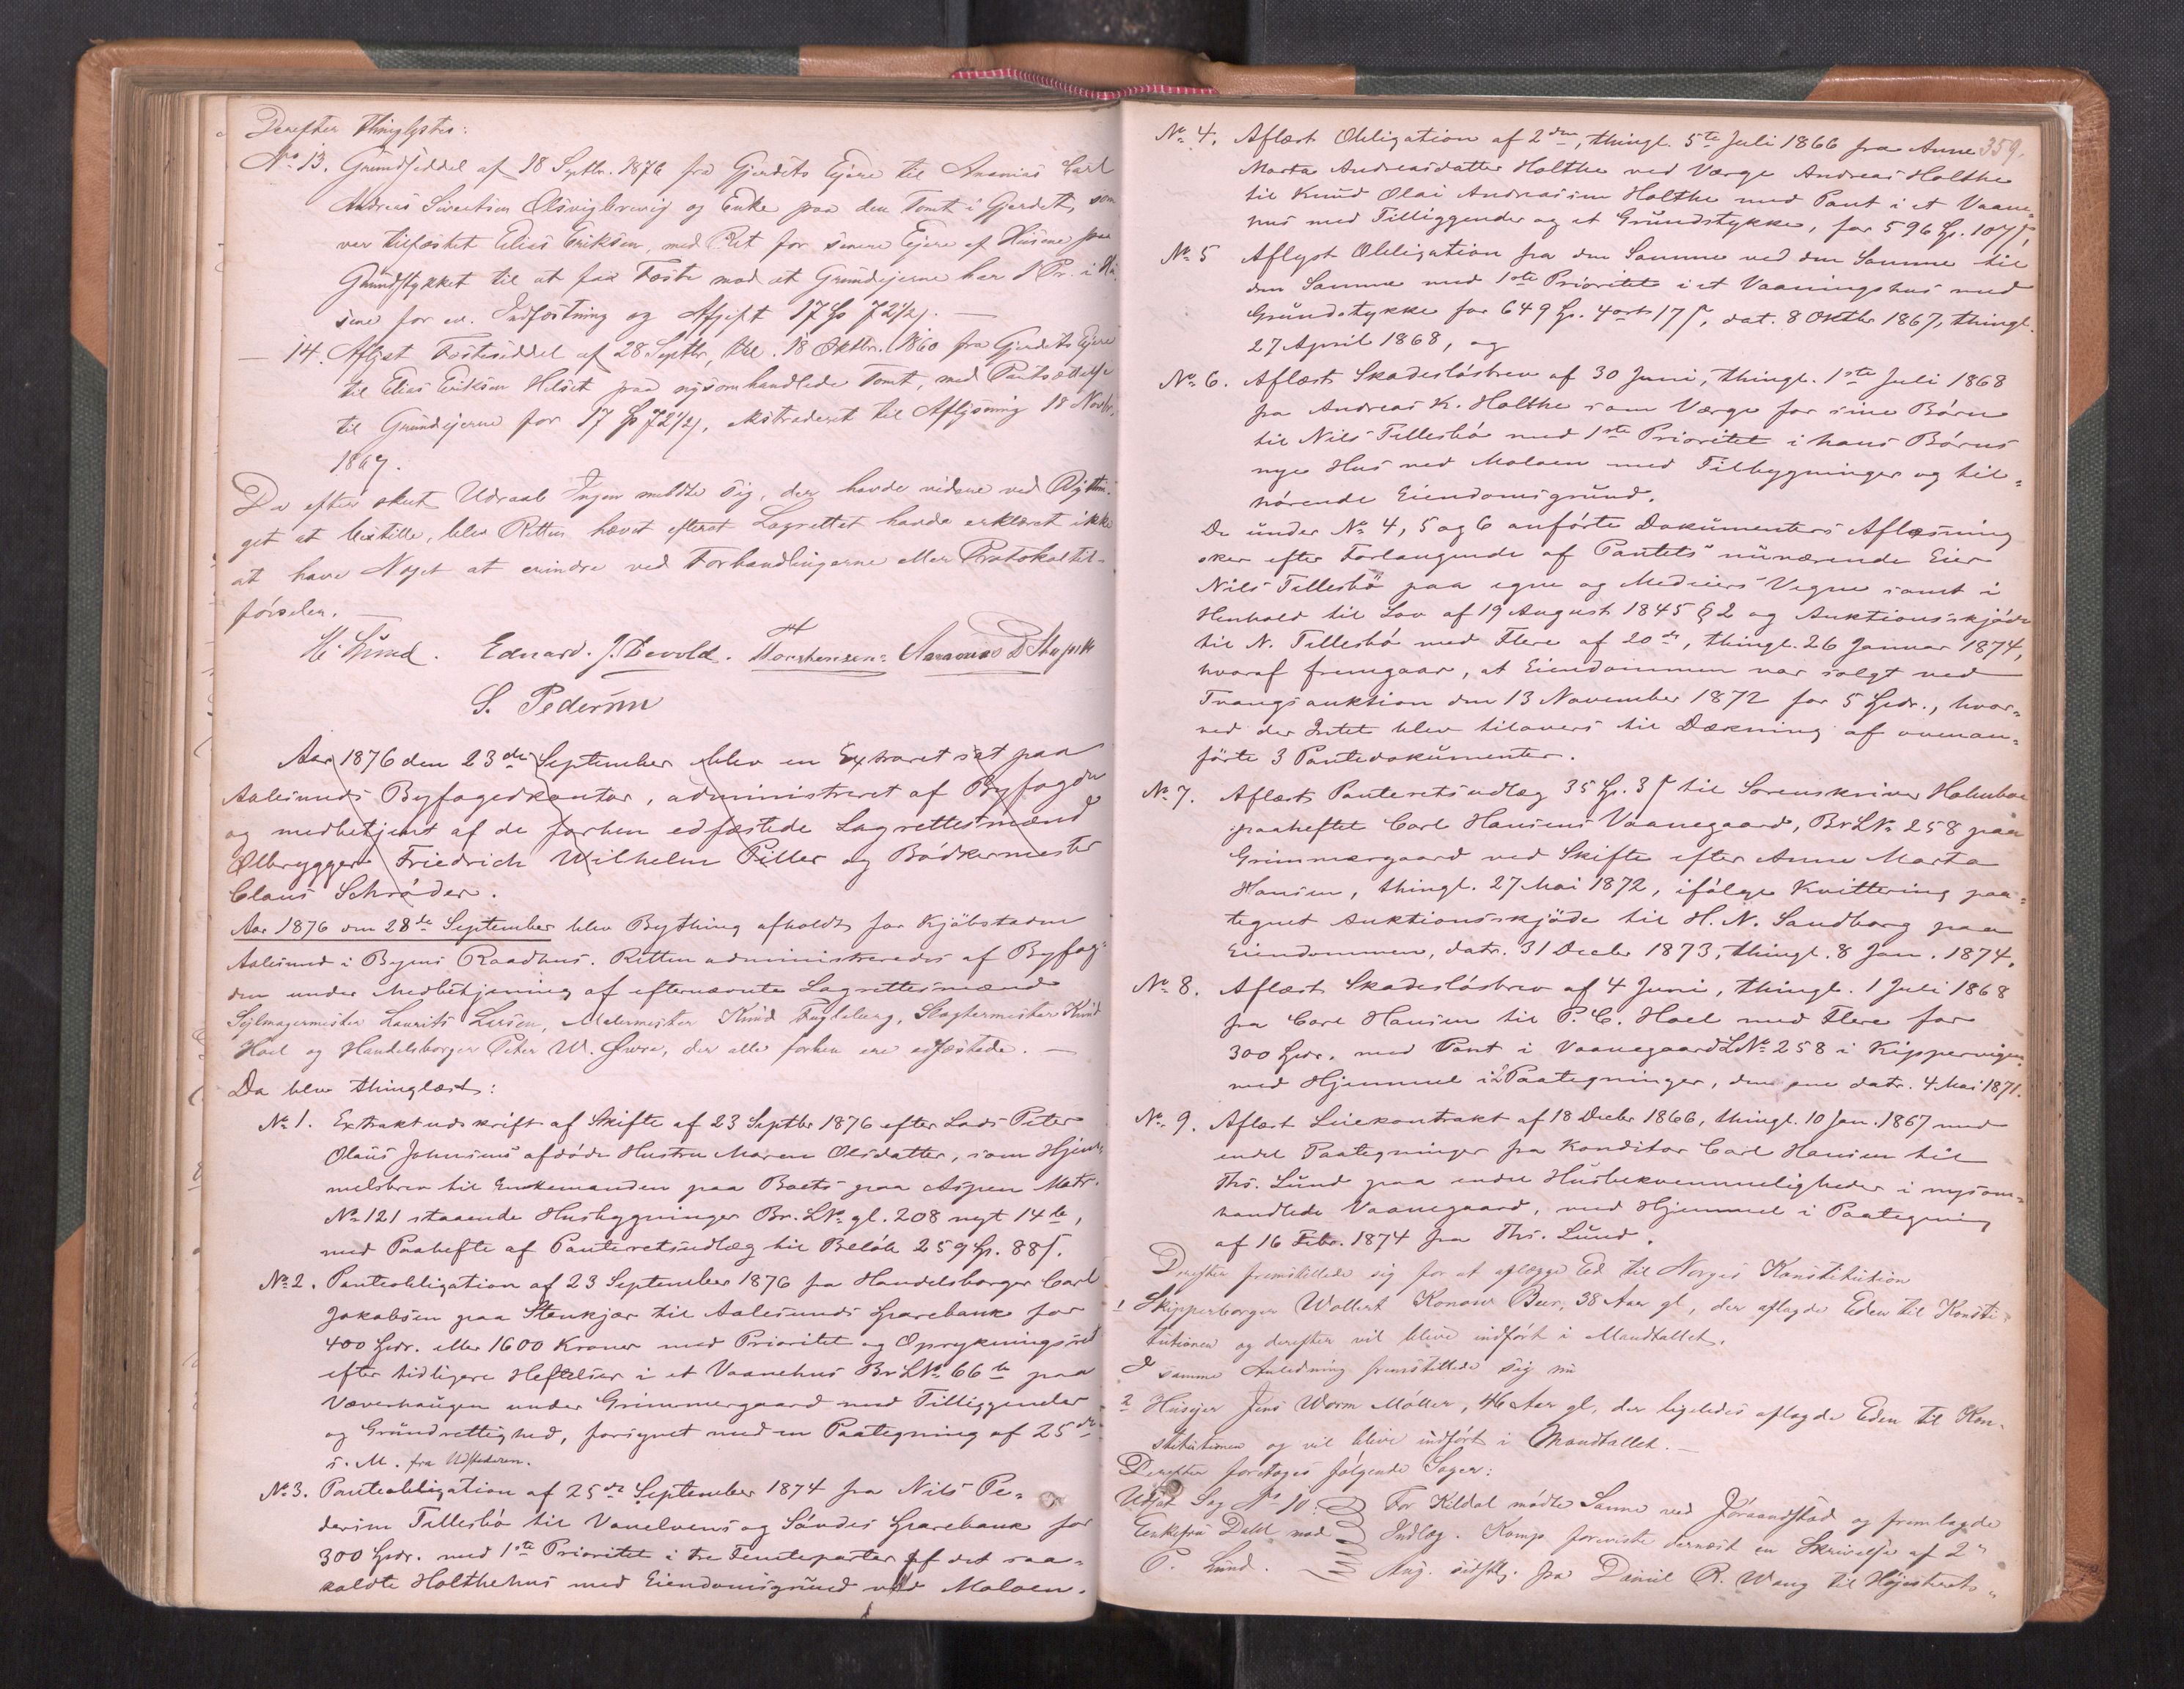 Derefter thinglystes:
No 13. Grundseddel af 18 Septbr. 1876 fra Gjerdets Ejere til Ananias Carl
Andreas Sivertsen Olsvigbrevig og Enke paa den Tomt i Gjerdet, som
var tilfæstet Elias Eriksen, med Ret for senere Ejere af Husene paa
Grundstykket til at faa Fæste mod at Grundejerne har 1 Pr. i Hu-
sene for ev. Indfæstning og Afgift 17 Sp 72½ s. —
— 14. Aflyst Fæsteseddel af 28 Septbr, thl. 18 Oktbr. 1860 fra Gjerdets Ejere
til Elias Eriksen Helset paa nysomhandlede Tomt, med Pantsættelse
til Grundejerne for 17 Sp 72½ s, extraderet til Aflysning 18 Novbr.
1867.
Da efter skeet Udraab Ingen meldte sig, der havde videre ved Bythin-
get at bestille, blev Retten hævet efterat Lagrettet havde erklæret ikke
at have Noget at erindre ved Forhandlingerne eller Protokoltil-
førselen. —
H. Lund. Eduard. J. Devold. Ananias D.
S. Pedersen
Aar 1876 den 23de September blev en Extraret sat paa
Aalesunds Byfogedkontor, administreret af Byfogden
og medbetjent af de forhen edfæstede Lagrettesmænd
Ølbrygger Friedrich Wilhelm Piller og Bødkermester
Claus Schrøder.
Aar 1876 den 28de September blev Bything afholdt for Kjøbstaden
Aalesund i Byens Raadhus. Retten administreredes af Byfog-
den under Medbetjening af efternævnte Lagrettesmænd
Sejlmagermester Laurits Larsen, Malermester Knud Fugleberg, Slagtermester Knud
Hoel og Handelsborger Peter W. Øwre, der alle forhen ere edfæstede. —
Da blev thinglæst:
No 1. Extraktudskrift af Skifte af 23 Septbr 1876 efter Lods Peter
Olaus Johnsens afdøde Hustru Maren Olsdatter, som Hjem-
melsbrev til Enkemanden paa Boets paa Aspen Matr.
No 121 staaende Husbygninger Br. LNo gl. 208 nyt 14 b,
med Paahefte af Panteretsudlæg til Beløb 259 Sp. 88 s.
No 2. Panteobligation af 23 September 1876 fra Handelsborger Carl
Jakobsen paa Stenkjær til Aalesunds Sparebank for
400 Spdr. eller 1600 Kroner med Prioritet og Oprykningsret
efter tidligere Heftelser i et Vaanehus Br LNo 66 b paa
Væverhaugen under Grimmergaard med Tilliggender
og Grundrettighed, forsynet med en Paategning af 25de
s. M. fra Udstederen.
No 3. Panteobligation af 25de September 1874 fra Nils Pe-
dersen Tillesbø til Vanelvens og Søndes Sparebank for
300 Spdr. med 1ste Prioritet i tre Femteparter af det saa-
kaldte Holthehus med Eiendomsgrund ved Moloen.
359.
No 4. Aflæst Obligation af 2den, thingl. 5te Juli 1866 fra Anne
Marta Andreasdatter Holthe ved Værge Andreas Holthe
til Knud Olai Andreassen Holthe med Pant i et Vaane-
hus med Tilliggender og et Grundstykke, for 596 Sp. 107 s,
No 5 Aflyst Obligation fra den Samme ved den Samme til
den Samme med 1ste Prioritet i et Vaaningshus med
Grundstykke for 649 Sp. 4 ort 17 s, dat. 8 Oktbr 1867, thingl.
27 April 1868, og
No 6. Aflæst Skadesløsbrev af 30 Juni, thingl. 1ste Juli 1868
fra Andreas K. Holthe som Værge for sine Børn
til Nils Tillesbø med 1ste Prioritet i hans Børns
nye Hus ved Moloen med Tilbygninger og til-
hørende Eiendomsgrund.
De under No 4, 5 og 6 anførte Dokumenters Aflæsning
sker efter Forlangende af Pantets nuværende Eier
Nils Tillesbø paa egne og Medeiers Vegne samt i
Henhold til Lov af 19 August 1845 § 2 og Auktionsskjøde
til N. Tillesbø med Flere af 20de, thingl. 26 Januar 1874,
hvoraf fremgaar, at Eiendommen var solgt ved
Tvangsauktion den 13 November 1872 for 5 Spdr., hvor-
ved der Intet blev tilovers til Dækning af ovenan-
førte 3 Pantedokumenter.
No 7. Aflæst Panteretsudlæg 35 Sp. 3 s til Sorenskriver Holmboe
paaheftet Carl Hansens Vaanegaard, Br LNo 258 paa
Grimmergaard ved Skifte efter Anne Marta
Hansen, thingl. 27 Mai 1872, ifølge Kvittering paa-
tegnet Auktionsskjøde til H. N. Sandborg paa
Eiendommen, datr. 31 Decbr 1873, thingl. 8 Jan. 1874.
No 8. Aflæst Skadesløsbrev af 4 Juni, thingl. 1 Juli 1868
fra Carl Hansen til P. C. Hoel med Flere for
300 Spdr. med Pant i Vaanegaard LNo 258 i Kippervigen
med Hjemmel i 2 Paategninger, den ene datr. 4 Mai 1871.
No 9. Aflæst Leiekontrakt af 18 Decbr 1866, thingl. 10 Jan. 1867 med
endel Paategninger fra Konditor Carl Hansen til
Ths. Lund paa endel Husbekvemmeligheder i nysom-
handlede Vaanegaard, med Hjemmel i Paategning
af 16 Febr. 1874 fra Ths. Lund.
Derefter fremstillede sig for at aflægge Ed til Norges Konstitution
1 Skipperborger Wollert Konow Beer, 38 Aar gl, der aflagde Eden til Konsti-
tutionen og derefter vil blive indført i Mandtallet.
I samme Anledning fremstillede sig nu
2 Husejer Jens Worm Møller, 46 Aar gl, der ligeledes aflagde Eden til Kon-
stitutionen og vil blive indført i Mandtallet. —
Derefter foretoges følgende Sager:
Udsat Sag No 10. For Kildal mødte Samme ved Jøraandstad og fremlagde
Enkefru Dahl mod Indlæg. Komp. foreviste dernæst en Skrivelse af 2
P. Lund. Aug. sidstl. fra Daniel R. Wang til Højesterets-